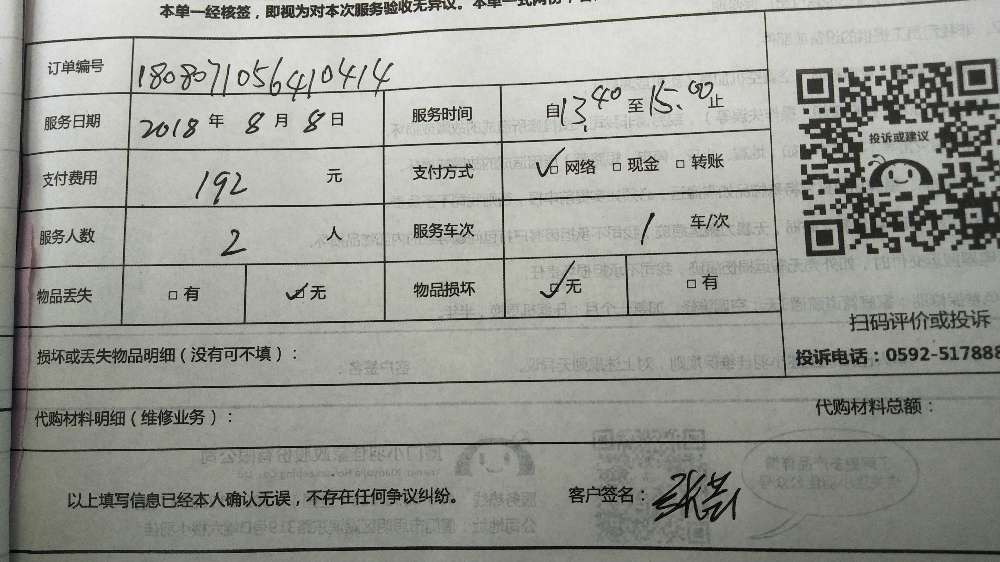 本单一经核签，即视为对本次服务验收无异议。本单一式两份
订单编号 1808071056410414
服务日期 2018 年 8 月 8 日 服务时间 自 13.40 至 15.00 止
支付费用 192 元 支付方式 ☑ 网络 □ 现金 □ 转账
服务人数 2 人 服务车次 1 车/次
物品丢失 □ 有 ☑ 无 物品损坏 ☑ 无 □ 有
投诉或建议
扫码评价或投诉
投诉电话：0592-517888
损坏或丢失物品明细（没有可不填）：
代购材料明细（维修业务）： 代购材料总额：
以上填写信息已经本人确认无误，不存在任何争议纠纷。 客户签名：